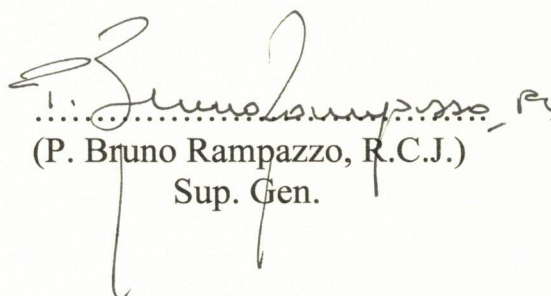 P. Bruno Rampazzo
(P. Bruno Rampazzo, R.C.J.)
Sup. Gen.